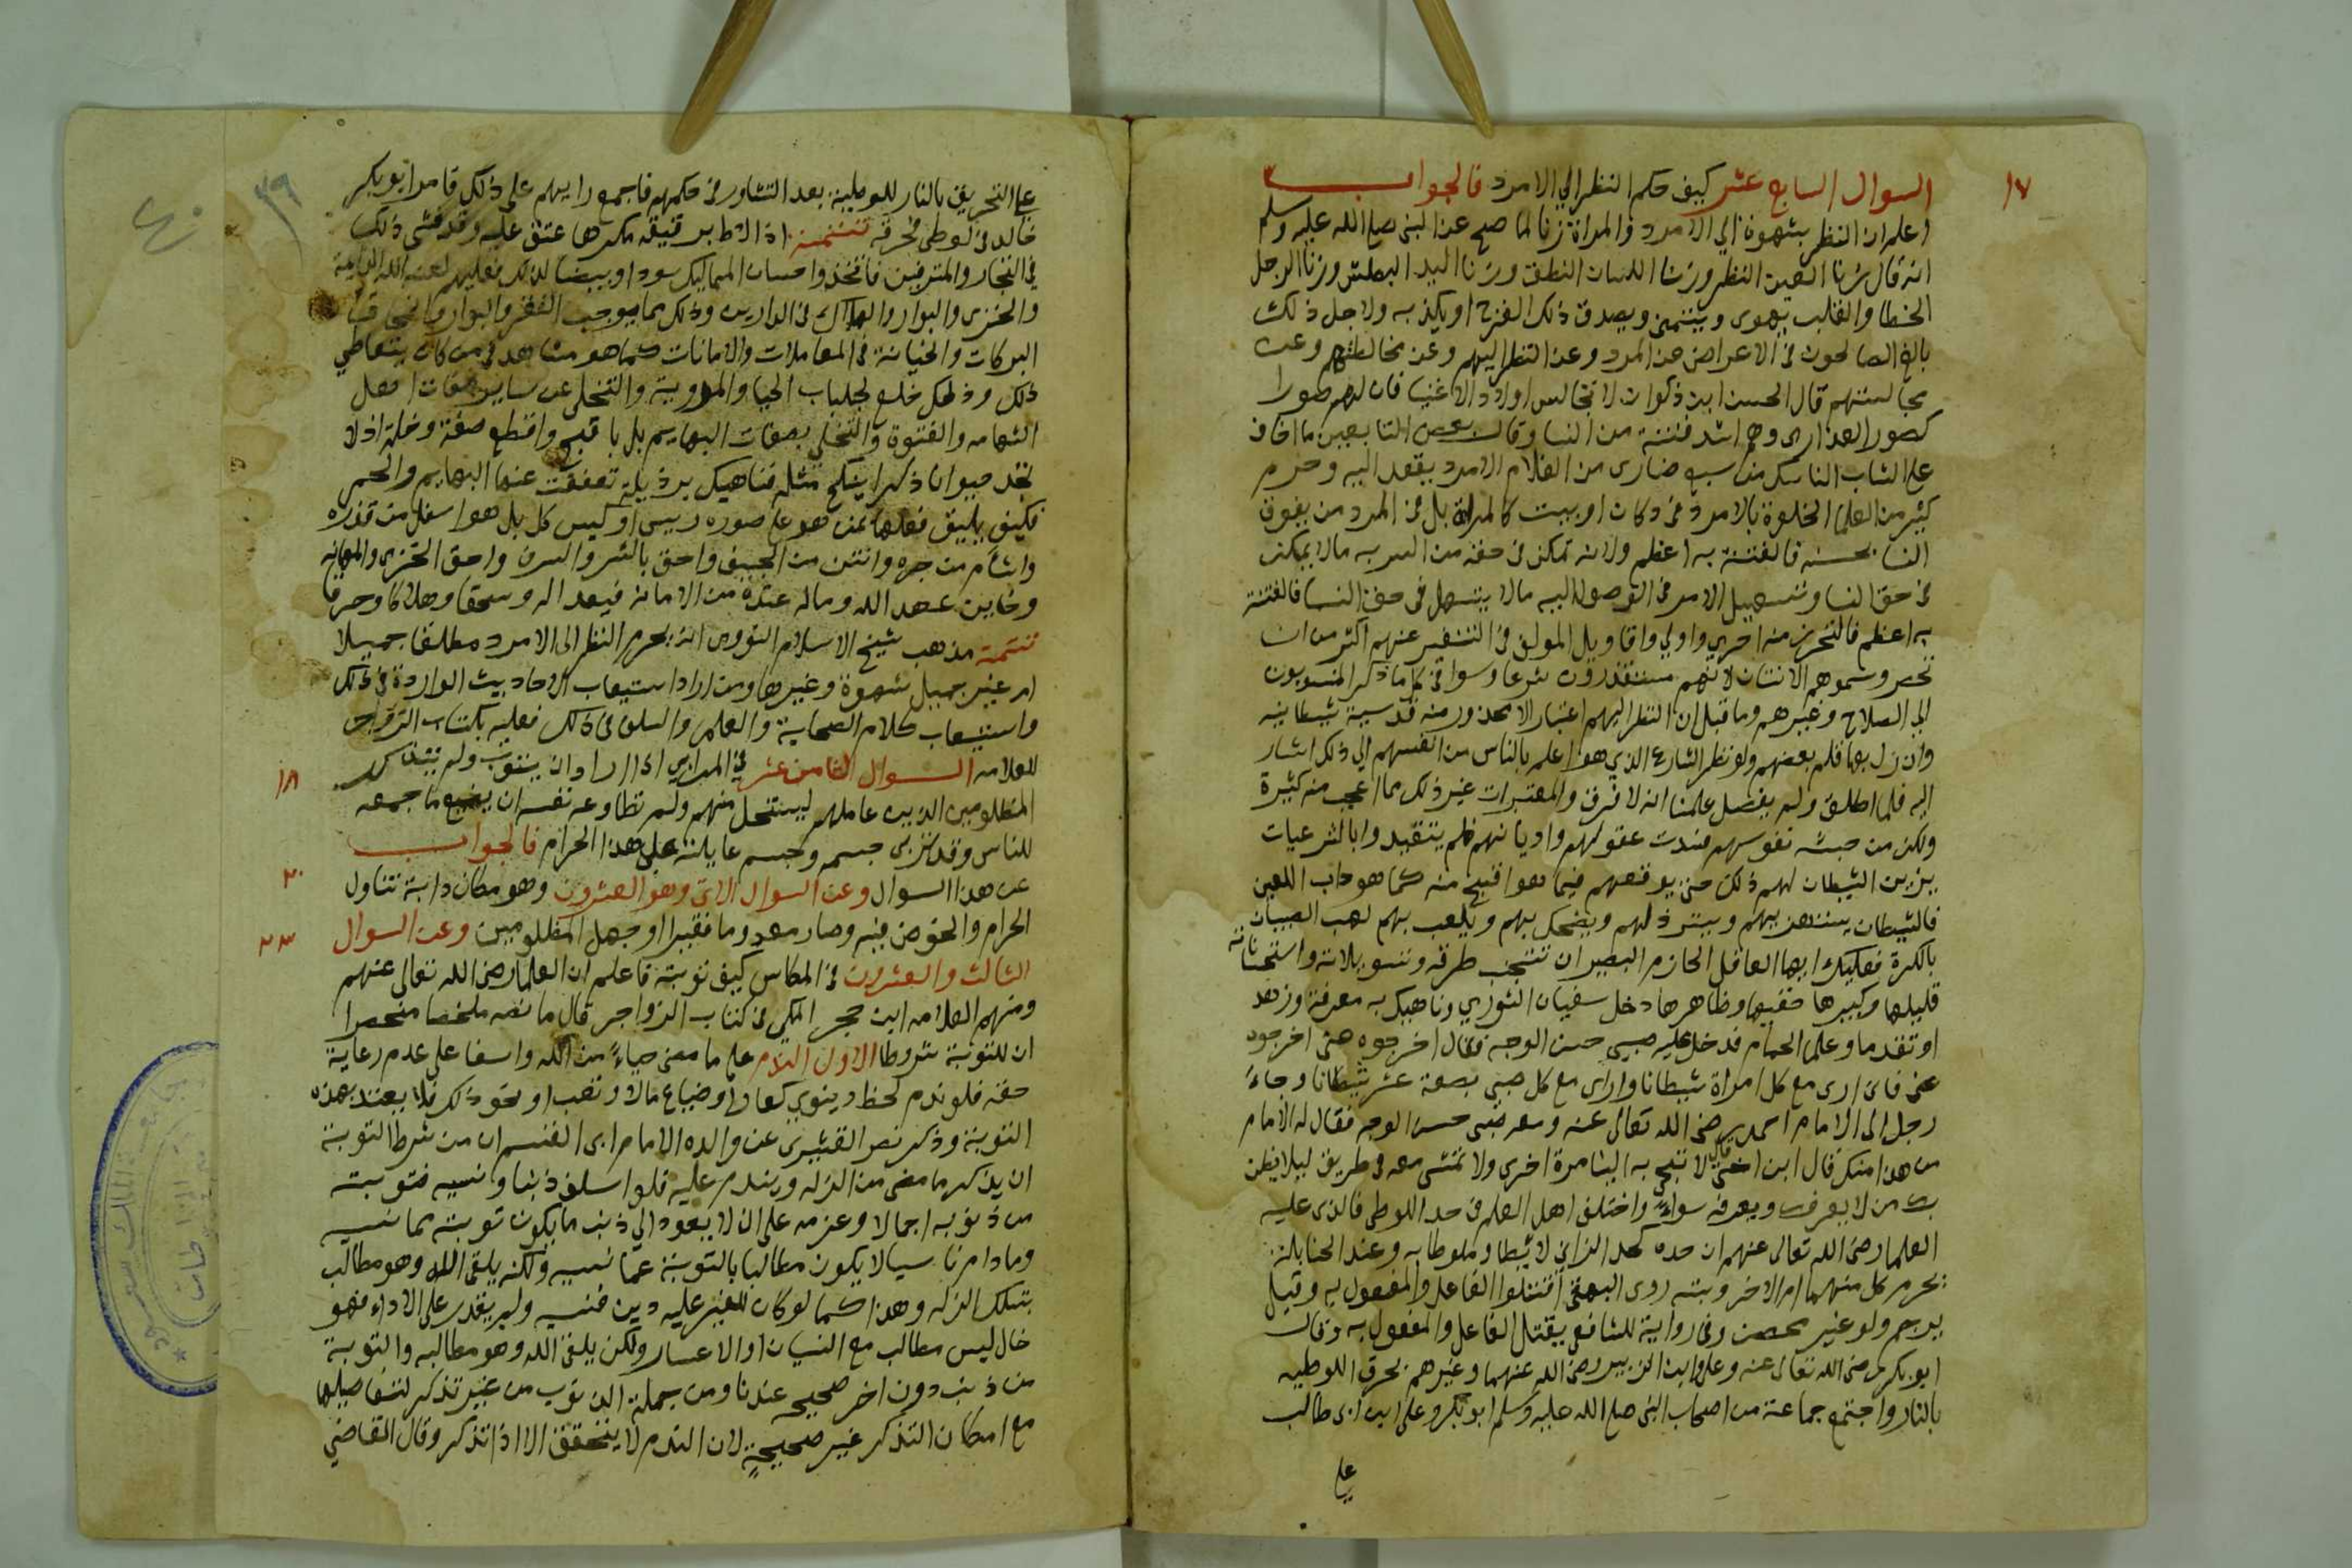 ١٧
السوال السابع عشر كيف حكم النظر الي الامرد فالجواب
اعلم ان النظر بشهوة الي الامرد والمراة زنا لما صح عن النبي صلي الله عليه وسلم
انه قال زنا العين النظر وزنا اللسان النطق وزنا اليد البطش وزنا الرجل
الخطا والقلب يهوى ويتمنى ويصدق ذلك الفرج او يكذبه ولاجل ذلك
بالغ الصالحون في الاعراض عن المرد وعن النظر اليهم وعن مخالطتهم وعن
مجالستهم قال الحسن ابن ذكوان لا تجالس اولاد الاغنيا فان لهم صورا
كصور العذارى وهم اشد فتنة من النسا وقال بعض التابعين ما اخاف
على الشاب الناسك من سبع ضارى من الغلام الامرد يقعد اليه وحرم
كثير من العلما الخلوة بالامرد في دكان او بيت كالمراة بل في المرد من يفوق
النسا بحسنه فالفتنة به اعظم ولانه تمكن في حقه من الشر به مالا يمكن
في حق النسا وتسهيل الامر في الوصول اليه مالا يتسهل في حق النسا فالفتنة
به اعظم فالتحرز منه احرى واولي واقاويل المولف في التنفير عنهم اكثر من ان
تحصر وسموهم الانتان لانهم مستقذرون شرعا وسوا في كل ما ذكر المنسوبون
الي الصلاح وغيرهم وما قيل ان النظر اليهم اعتبار لا محذور منه فدسيسة شيطانيه
وان زل بها قلم بعضهم ولو نظر الشارع الذي هو اعلم بالناس من انفسهم الي ذلك اشار
اليه فلما اطلق ولم يفصل علمنا انه لا فرق والمعتبرات غير ذلك مما اعجب منه كثيرة
ولكن من خبثت نفوسهم فسدت عقولهم واديانهم فلم يتقيدوا بالشرعيات
يزين الشيطان لهم ذلك حتى يوقعهم فيما هو اقبح منه كما هو داب اللعين
فالشيطان يستهزي بهم ويضحك بهم ويلعب بهم لعب الصبيان
بالكرة فعليك ايها العاقل الحازم البصير ان تتجنب طرقه وتسويلاته واستحساناته
قليلها وكبيرها خفيها وظاهرها دخل سفيان الثوري وناهيك به معرفة وزهد
او تقدما وعلما الحمام فدخل عليه صبي حسن الوجه فقال اخرجوه عني اخرجوه
عني فاني ارى مع كل امراة شيطانا وارى مع كل صبي بضعة عشر شيطانا وجاء
رجل الى الامام احمد رضى الله تعالى عنه ومعه صبى حسن الوجه فقال له الامام
من هذا منك قال ابن اختي قال لا تجي به الينا مرة اخرى ولا تمشى معه في طريق ليلا يظن
بك من لا يعرفك ويعرفه سواءً واختلف اهل العلم في حد اللوطى فالذى عليه
العلما رضى الله تعالى عنهم ان حده كحد الزاني لائطا وملوطا به وعند الحنابلة
يحرم كل منهما ام الاخر وبنته روى البيهقي اقتلوا الفاعل والمفعول به وقيل
يرجم ولو غير محصن وفي رواية للشافعي يقتل الفاعل والمفعول به وقال
ابو بكر رضى الله تعالى عنه وعلي وابن الزبير رضى الله عنهما وغيرهم يحرق اللوطيه
بالنار واجتمع جماعة من اصحاب النبي صلى الله عليه وسلم ابو بكر وعلى ابن ابى طالب
علي
٣٩
علي التحريق بالنار للوطية بعد التشاور في حكمهم فاجمع رايهم على ذلك فامر ابو بكر
خالد في لوطى فحرقه تتمة اذا وطى رقيقه مكرها عتق عليه وقد فشى ذلك
في التجار والمترفين فاتخذوا حسان المماليك سودا وبيضا لذلك فعليهم لعنة الله الدايمة
والخزى والبوار والهلاك في الدارين وذلك مما يوجب الفقر والبوار وانمحاق
البركات والخيانة في المعاملات والامانات كما هو مشاهد في من كان يتعاطي
ذلك وذلك خلع لجلباب الحيا والمروية والتخلى عن ساير صفات اهل
الشهامه والفتوة والتحلي بصفات البهايم بل باقبح وافظع صفة وخلة اذ لا
نجد حيوانا ذكرا ينكح مثله فناهيك برذيلة تعففت عنها البهايم والحمر
فكيف يليق فعلها بمن هو على صوره رييس او كيس كل بل هو اسفل من قذره
واشام من جره وانتن من الجيف واحق بالشر والسرف واحق الخزى والمهانه
وخاين عهد الله وماله عنده من الامانة فبعدا له وسحقا وهلاكا وحرقا
تتمة مذهب شيخ الاسلام النووى انه يحرم النظر الى الامرد مطلقا جميلا
ام غير جميل شهوة وغيرها ومن اراد استيعاب الاحاديث الواردة في ذلك
واستيعاب كلام الصحابة والعلما والسلف في ذلك فعليه بكتاب الزواجر
١٨
للعلامه السوال الثامن عشر في المرابي اذا اراد ان يتوب ولم يتذكر
المظلومين الذين عاملهم ليستحل منهم ولم تطاوعه نفسه ان يضيع ما جمعه
للناس وقد تربى جسمه وجسم عايلته علي هذا الحرام فالجواب
٢٠
عن هذا السوال وعن السوال الاتي وهو العشرون وهو من كان دابه تناول
الحرام والخوض فيه وصار معدوما فقيرا وجهل المظلومين وعن السوال
٢٣
الثالث والعشرون في المكاس كيف توبته فاعلم ان العلما رضى الله تعالى عنهم
ومنهم العلامه ابن حجر المكي في كتاب الزواجر قال ما نصه ملخصا مختصرا
ان للتوبة شروطا الاول الندم على ما مضى حياءً من الله واسفا على عدم رعاية
حقه فلو ندم لحظ دنيوي كعار او ضياع مال او تعب او نحو ذلك فلا يعتد بهذه
التوبة وذكر نصر القشيرى عن والده الامام ابى القسم ان من شرط التوبة
ان يذكر ما مضى من الزله ويندم عليه فلو اسلف ذنبا ونسيه فتوبته
من ذنوبه اجمالا وعزمه على ان لا يعود الي ذنب ما يكون توبته مما نسيه
وما دام ناسيا لا يكون مطالبا بالتوبة عما نسيه ولكنه يلقى الله وهو مطالب
بتلك الزله وهذا كما لو كان للغير عليه دين فنسيه ولم يقدر على الاداء فهو
حال ليس مطالب مع النسيان او الاعسار ولكن يلقى الله وهو مطالبه والتوبة
من ذنب دون اخر صحيح عندنا ومن جملة الذنوب من غير تذكر لتفاصيلها
مع امكان التذكر غير صحيحةٍ لان الندم لا يتحقق الا اذا تذكر وقال القاضي